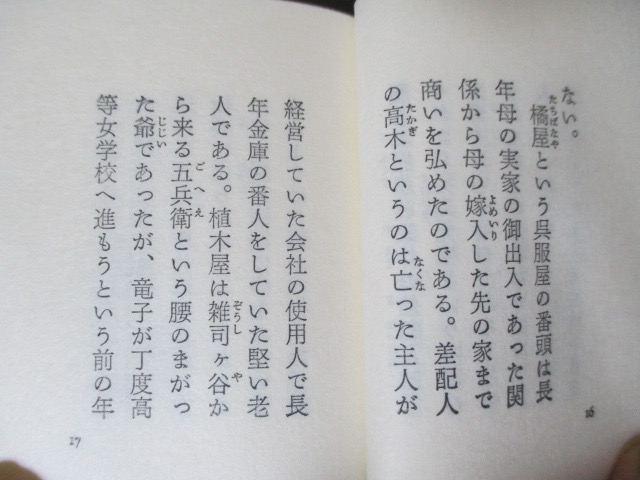 ない。
橘屋という呉服屋の番頭は長
年母の実家の御出入であった関
係から母の嫁入した先の家まで
商いを弘めたのである。差配人
の高木というのは亡った主人が
16
経営していた会社の使用人で長
年金庫の番人をしていた堅い老
人である。植木屋は雑司ヶ谷か
ら来る五兵衛という腰のまがっ
た爺であったが、竜子が丁度高
等女学校へ進もうという前の年
17